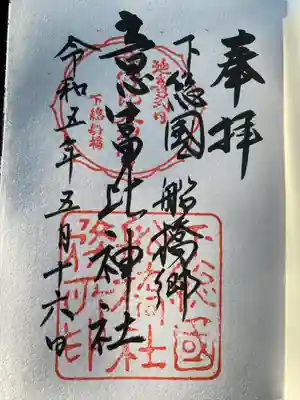 奉拝
下総國 船橋郷
意富比神社
令和五年五月十六日
下総船橋